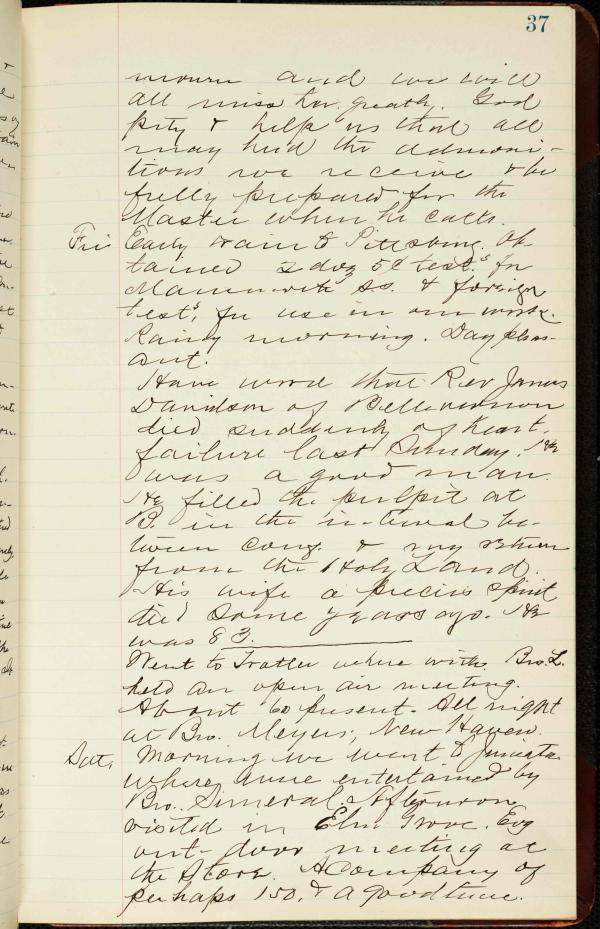 37
mourn and we will
all miss her greatly. God
pity & help us that all
may heed the admoni-
tions we receive & be
fully prepared for the
Master when he calls.
Fri Early train to Pittsburg. Ob-
tained 2 doz 5¢ test.s for
& foreign
test.s for use in our work.
Rainy morning. Day pleas-
ant.
Have word that Rev James
Davidson of Bellevernon
died suddenly of heart
failure last Sunday. He
was a good man.
He filled the pulpit at
B. in the interval be-
tween cong. & my return
from the Holy Land.
His wife a precius spirit
died some years ago. He
was 83.
Went to Trotter where with Bro. L.
held an open air meeting.
About 60 present. All night
at Bro. Meyers, New Haven.
Sat, Morning we went to Juniata
where were entertained by
Bro. Simeral. Afternoon
visited in Elm Grove. Evg
out-door meeting at
the Store. A Company of
perhaps 150, & a good time.